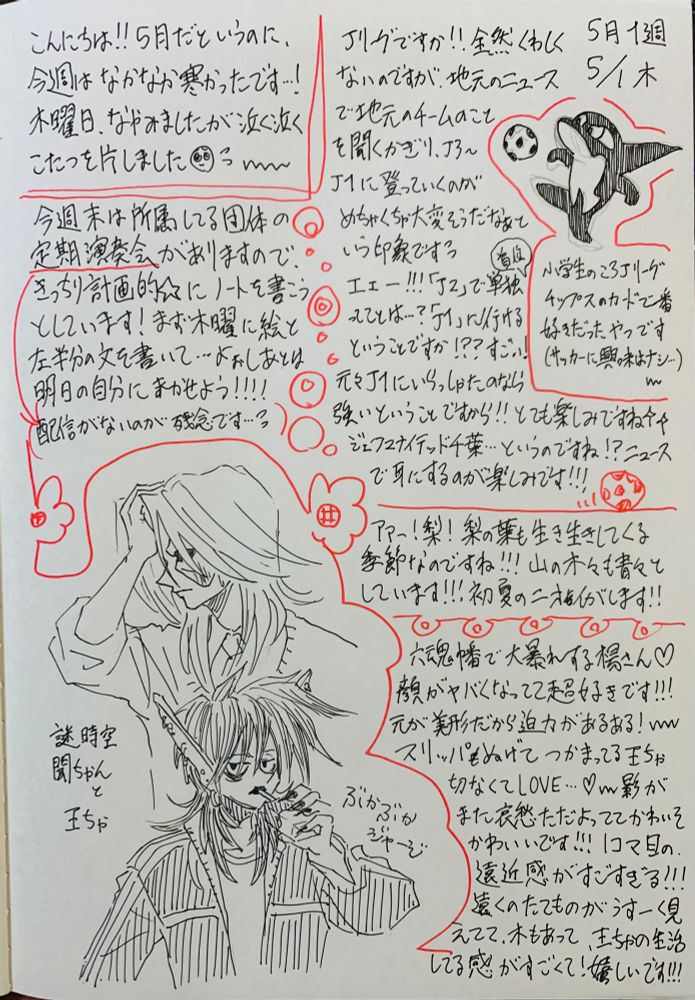 5月1週
5/1 木
こんにちは!! 5月だというのに、
今週はなかなか寒かったです…!
木曜日、なやみましたが泣く泣く
こたつを片しました
今週末は所属してる団体の
定期演奏会がありますので、
きっちり計画的☆にノートを書こう
としています! まず木曜に絵と
左半分の文を書いて…よぉしあとは
明日の自分にまかせよう!!!!
配信がないのが残念です…
謎時空
聞ちゃん
と
王ちゃ
ぶかぶか
じゃーじ
Jリーグですか!! 全然くわしく
ないのですが、地元のニュース
で地元のチームのこと
を聞くかぎり、J3〜
J1に登っていくのが
めちゃくちゃ大変そうだなぁて
いう印象です
エェー!!!「J2」で単独
首位
ってことは…?「J1」に行ける
ということですか!??すごい!
元々J1にいらっしゃたのなら
強いということですから!! とても楽しみですね
ジェフユナイテッド千葉…というのですね!? ニュース
で耳にするのが楽しみです!!!
小学生のころJリーグ
チップスのカードで一番
好きだったやつです
(サッカーに興味はナシ…)
アァー! 梨! 梨の葉も生き生きしてくる
季節なのですね!!! 山の木々も青々と
しています!!! 初夏のニオイがします!!
六魂幡で大暴れする楊さん♡
顔がヤバくなってて超好きです!!!
元が美形だから迫力があるある!
スリッパもぬげて つかまってる王ちゃ
切なくてLOVE…♡影が
また哀愁ただよっててかわいそ
かわいいです!!! 1コマ目の、
遠近感がすごすぎる!!!
遠くのたてものがうすーく見
えてて、木もあって、王ちゃの生活
してる感がすごくて! 嬉しいです!!!